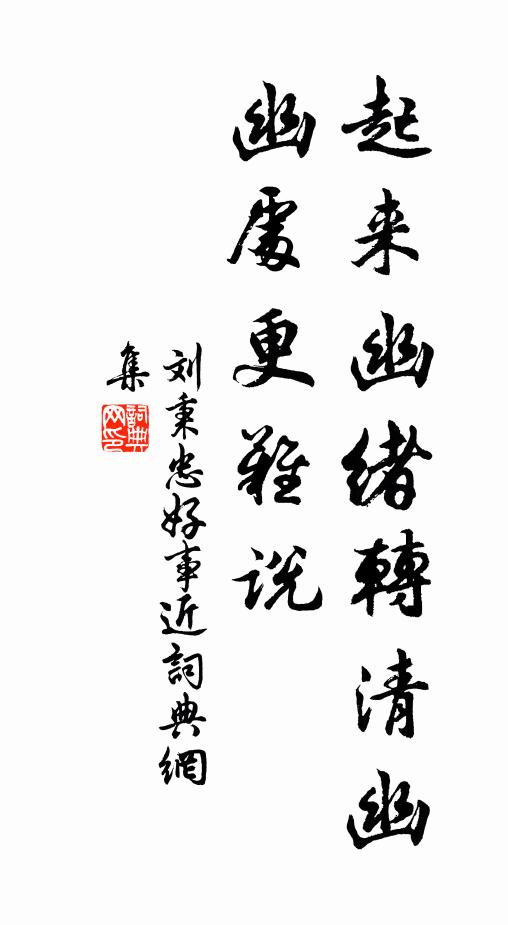 起来幽緒轉清幽
幽處更難説
刘秉忠好事近詞典網
集
詞典
网印